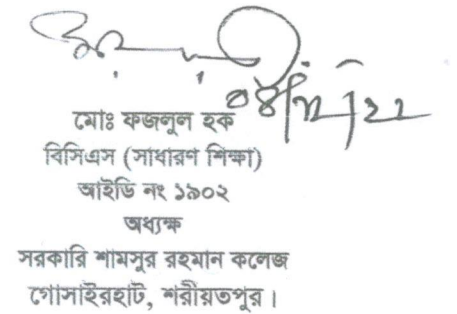 মোঃ ফজলুল হক
বিসিএস (সাধারণ শিক্ষা)
আইডি নং ১৯০২
অধ্যক্ষ
সরকারি শামসুর রহমান কলেজ
গোসাইরহাট, শরীয়তপুর।